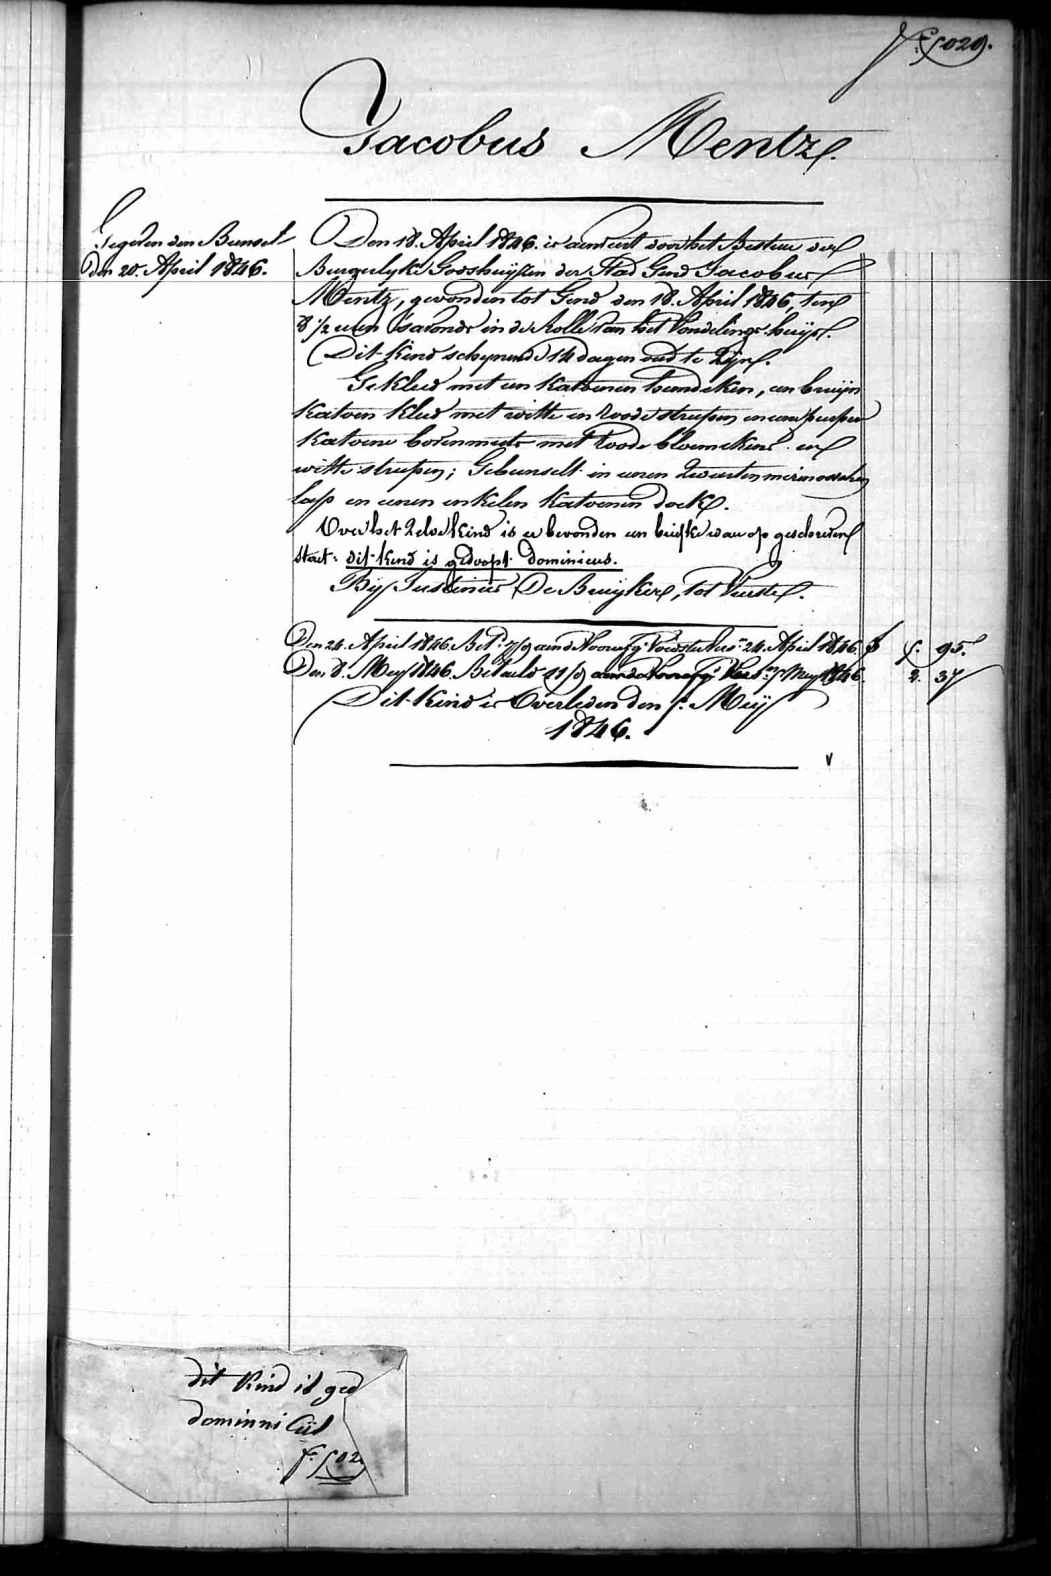 Jacobus Mentz.
Gegeven den Bunselt
den 20. April 1846.
Den 18. April 1846. is aanveert door het Bestier der
Burgerlyke Godshuijsen der Stad Gend Jacobus
Mentz, gevonden tot Gend den 18. April 1846, ten
8 1/2 uren 'savonds in de Rolle van het Vondelings-huijs.
Dit kind schynende 14 dagen oud te zyn.
Gekleed met een katoenen hemdeken, een bruijn
katoen kleed met witte en roode streepen en een
katoene bovenmuts met roode bloemekens en
witte streepen; Gebunselt in eenen zwarten
lap en eenen enkelen katoenen doek.
Over het zelve kind is er bevonden een briefke waer op geschreven
staet: dit kind is gedoopt dominicus.
Bij Justinus De Bruijker, tot Vurste.
Den 24. April 1846. Bet. 24. April 1846. 95.
Den 8. Meij 1846. Betaeld Meij 1846. 2. 37
Dit kind is Overleden den Meij
1846.
dit kind is ged
dominni cus